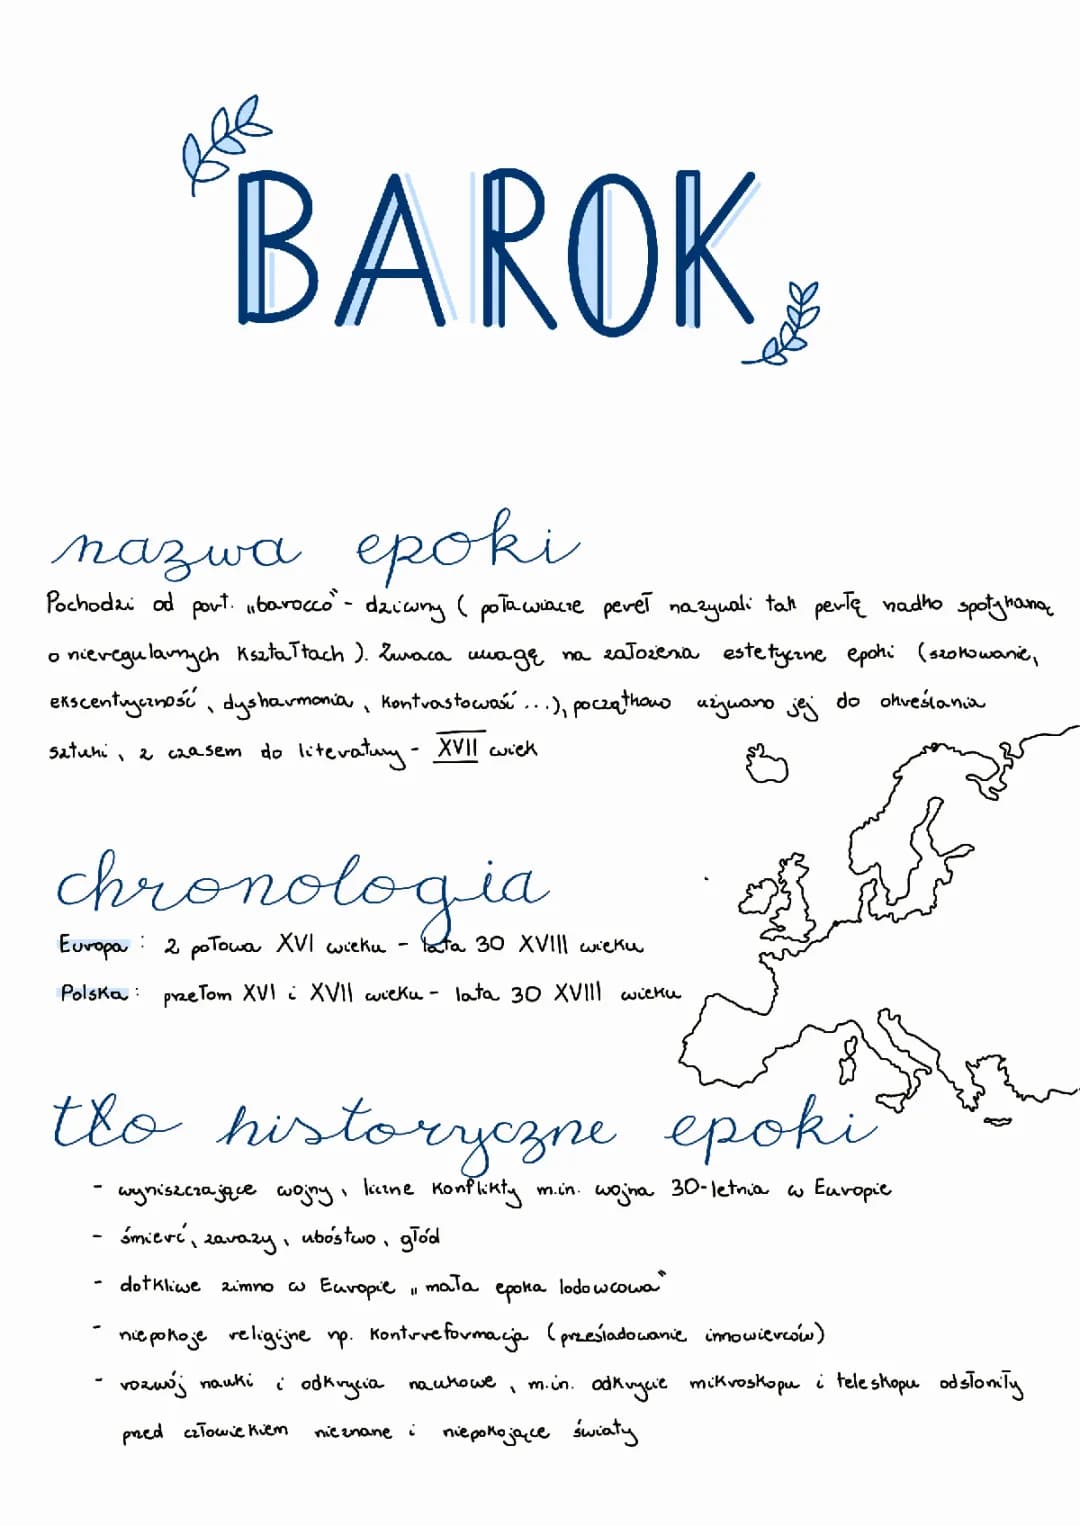 BAROK
nazwa epoki
Pochodzi od port. „barocco" - dziwny ( poławiacze pereł nazywali tak perłę rzadko spotykaną
o nieregularnych kształtach ). Zwraca uwagę na założenia estetyczne epoki (szokowanie,
ekscentryczność, dysharmonia, kontrastowość ...), początkowo używano jej do określania
sztuki, z czasem do literatury - XVII wiek
chronologia
Europa : 2 połowa XVI wieku - lata 30 XVIII wieku
Polska : przełom XVI i XVII wieku - lata 30 XVIII wieku
tło historyczne epoki
- wyniszczające wojny, liczne konflikty m.in. wojna 30-letnia w Europie
- śmierć, zarazy, ubóstwo, głód
- dotkliwe zimno w Europie „mała epoka lodowcowa"
- niepokoje religijne np. kontrreformacja (prześladowanie innowierców)
- rozwój nauki i odkrycia naukowe, m.in. odkrycie mikroskopu i teleskopu odsłoniły
przed człowiekiem nieznane i niepokojące światy